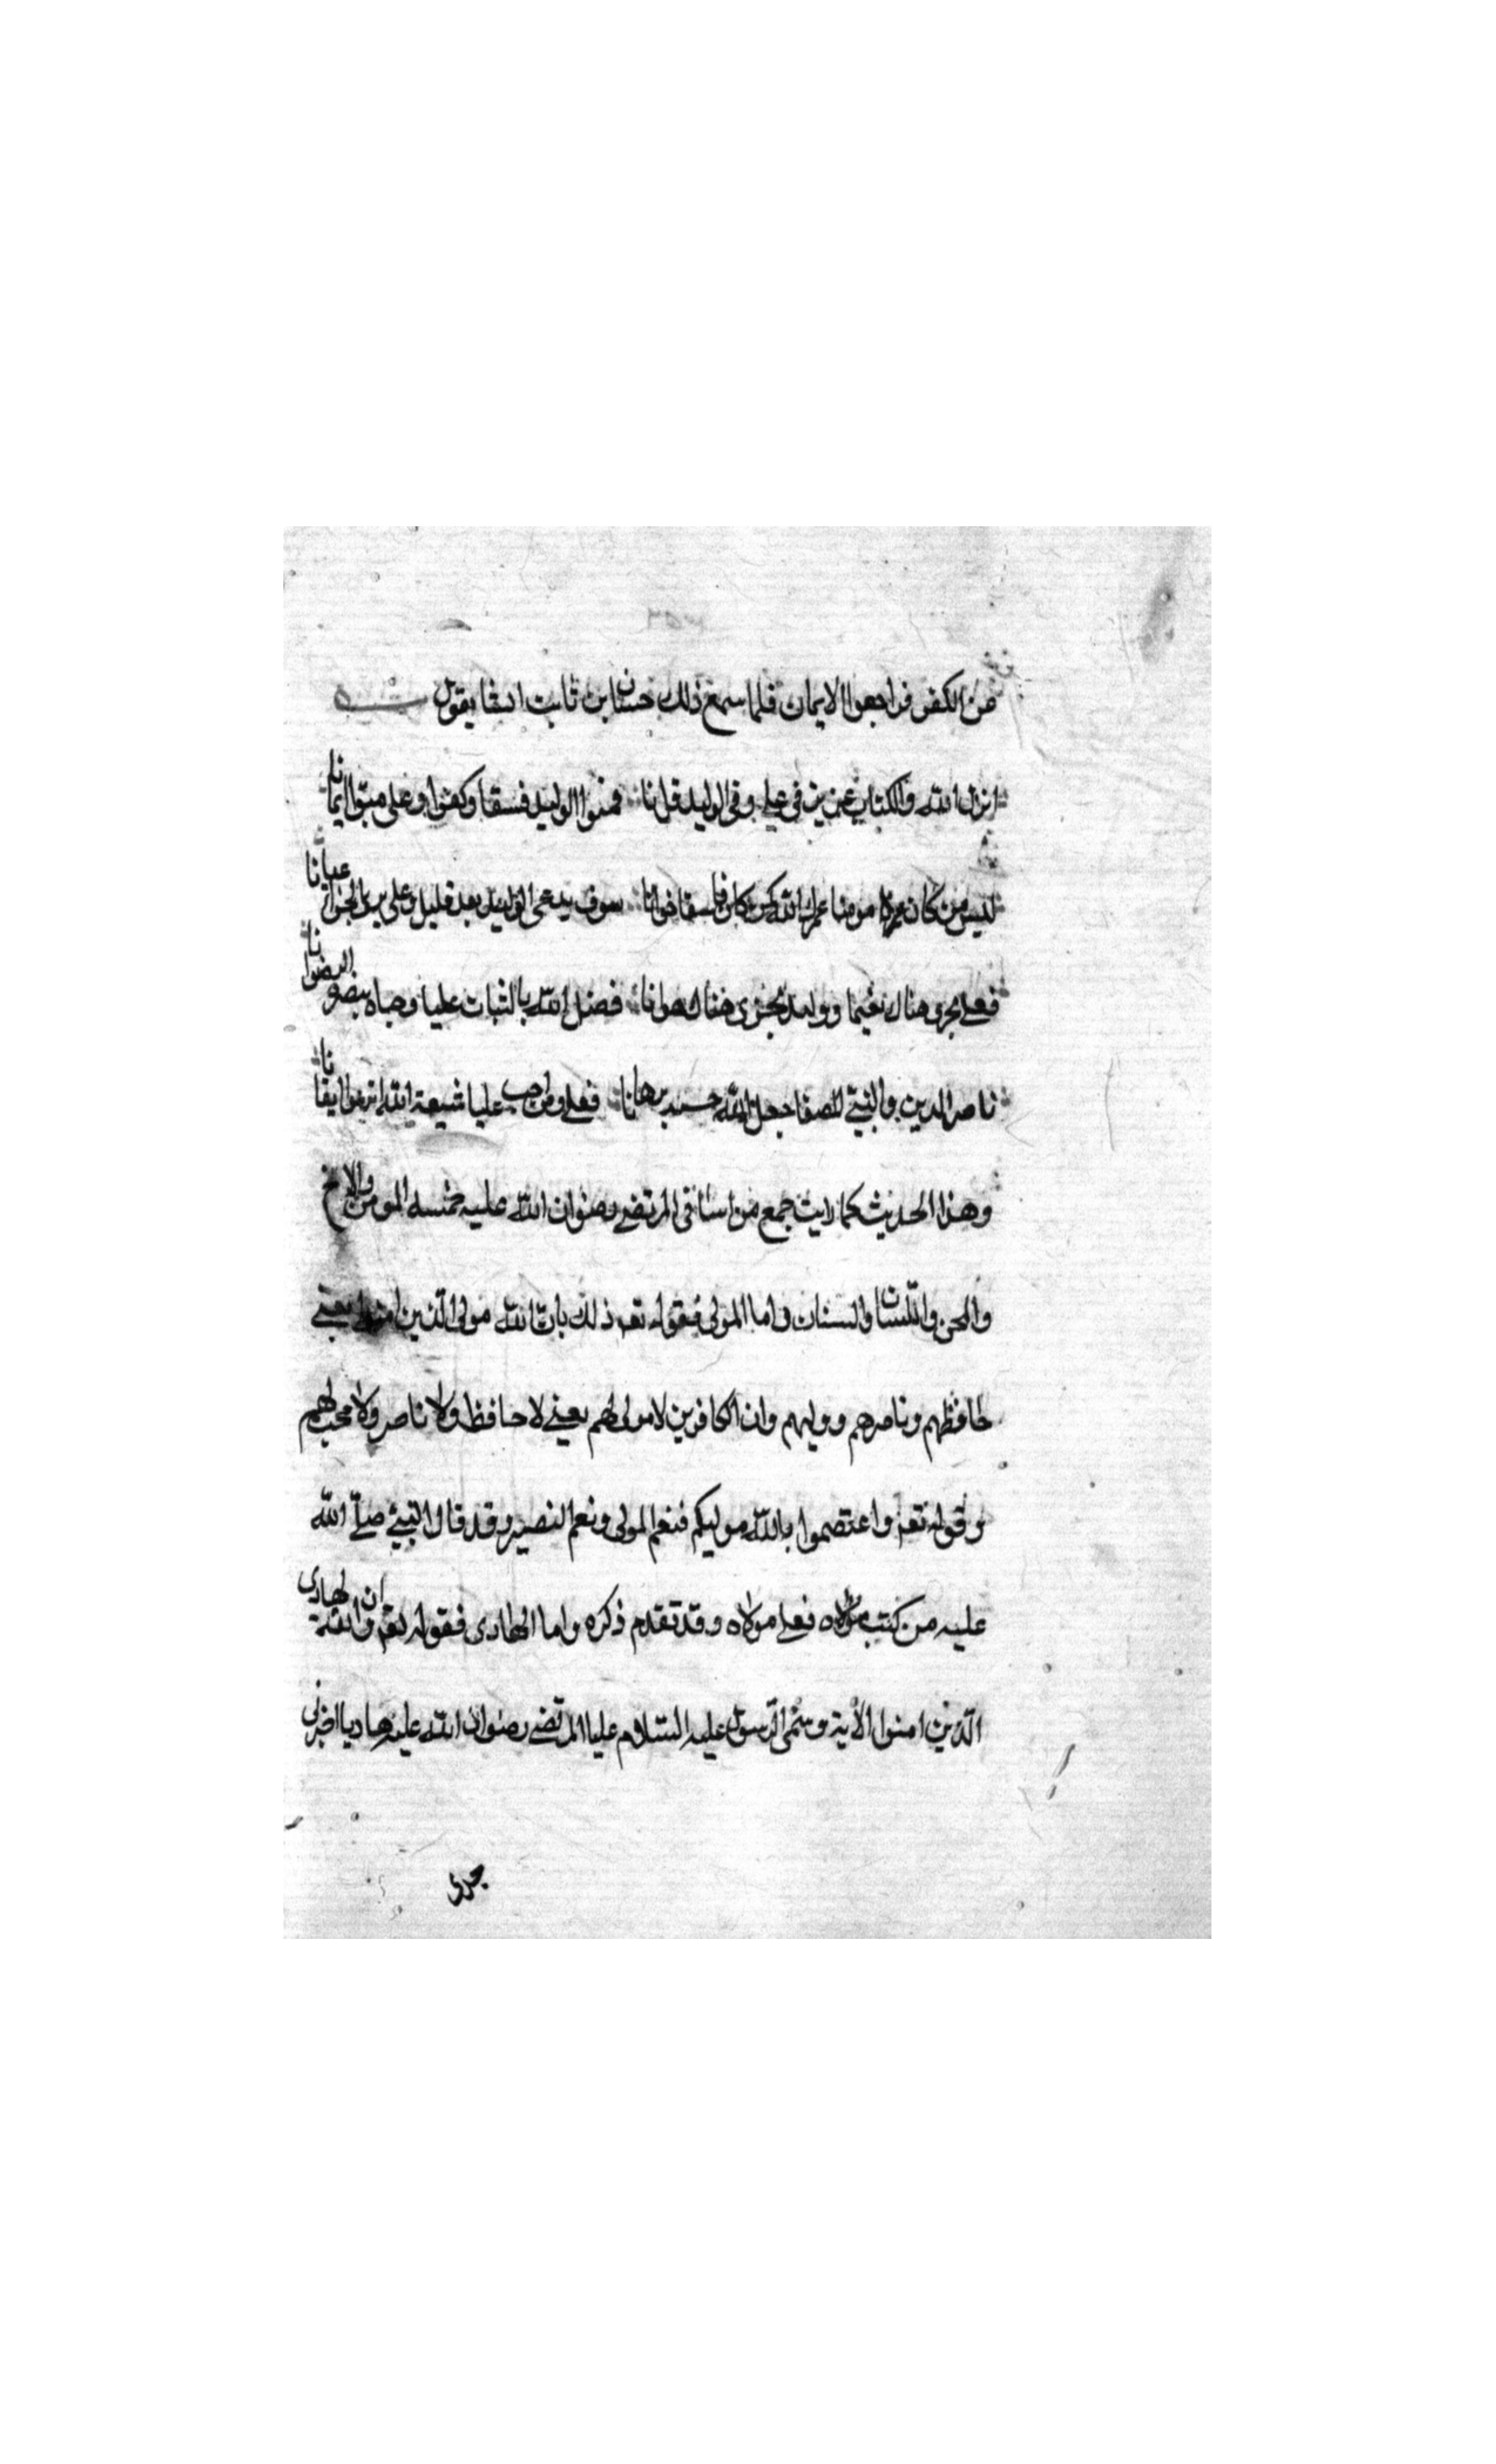 من الكفر فراجعوا الايمان فلما سمع ذلك حسان ابن ثابت انشا يقول شعر
انزل الله والكتاب عزيز في علي وفي الوليد قرانا فتبوا الوليد فسقا وكفرا وعلي مبتوا ايمانا
ليس من كان مومنا عمرك الله كمن كان فاسقا خوانا سوف يدعى الوليد بعد قليل وعلي الى عيانا
فعلي يجزى هناك نعيما ووليد يجزى هناك هوانا فضل الله بالثبات عليا وحباه الرضوانا
ناصر الدين والنبي جعل الله برهانا فعلي ومن احب عليا شيعة الله ايقانا
وهذا الحديث كما رايت جمع من اسامي المرتضى رضوان الله عليه خمسة المومن والاخ
والمحزن واللسان والسنان واما المولى فقوله تعه ذلك بان الله مولى الذين امنوا يعني
حافظهم وناصرهم ووليهم وان الكافرين لا مولى لهم يعني لا حافظ ولا ناصر ولا محب لهم
وقوله تعه واعتصموا بالله موليكم فنعم المولى ونعم النصير وقد قال النبي صلى الله
عليه من كنت مولاه فعلي مولاه وقد تقدم ذكره واما الهادى فقوله تعه وان الله لهادى
الذين امنوا الاية وسمى الرسول عليه السلام عليا المرتضى رضوان الله عليه هاديا اخبرني
جدى